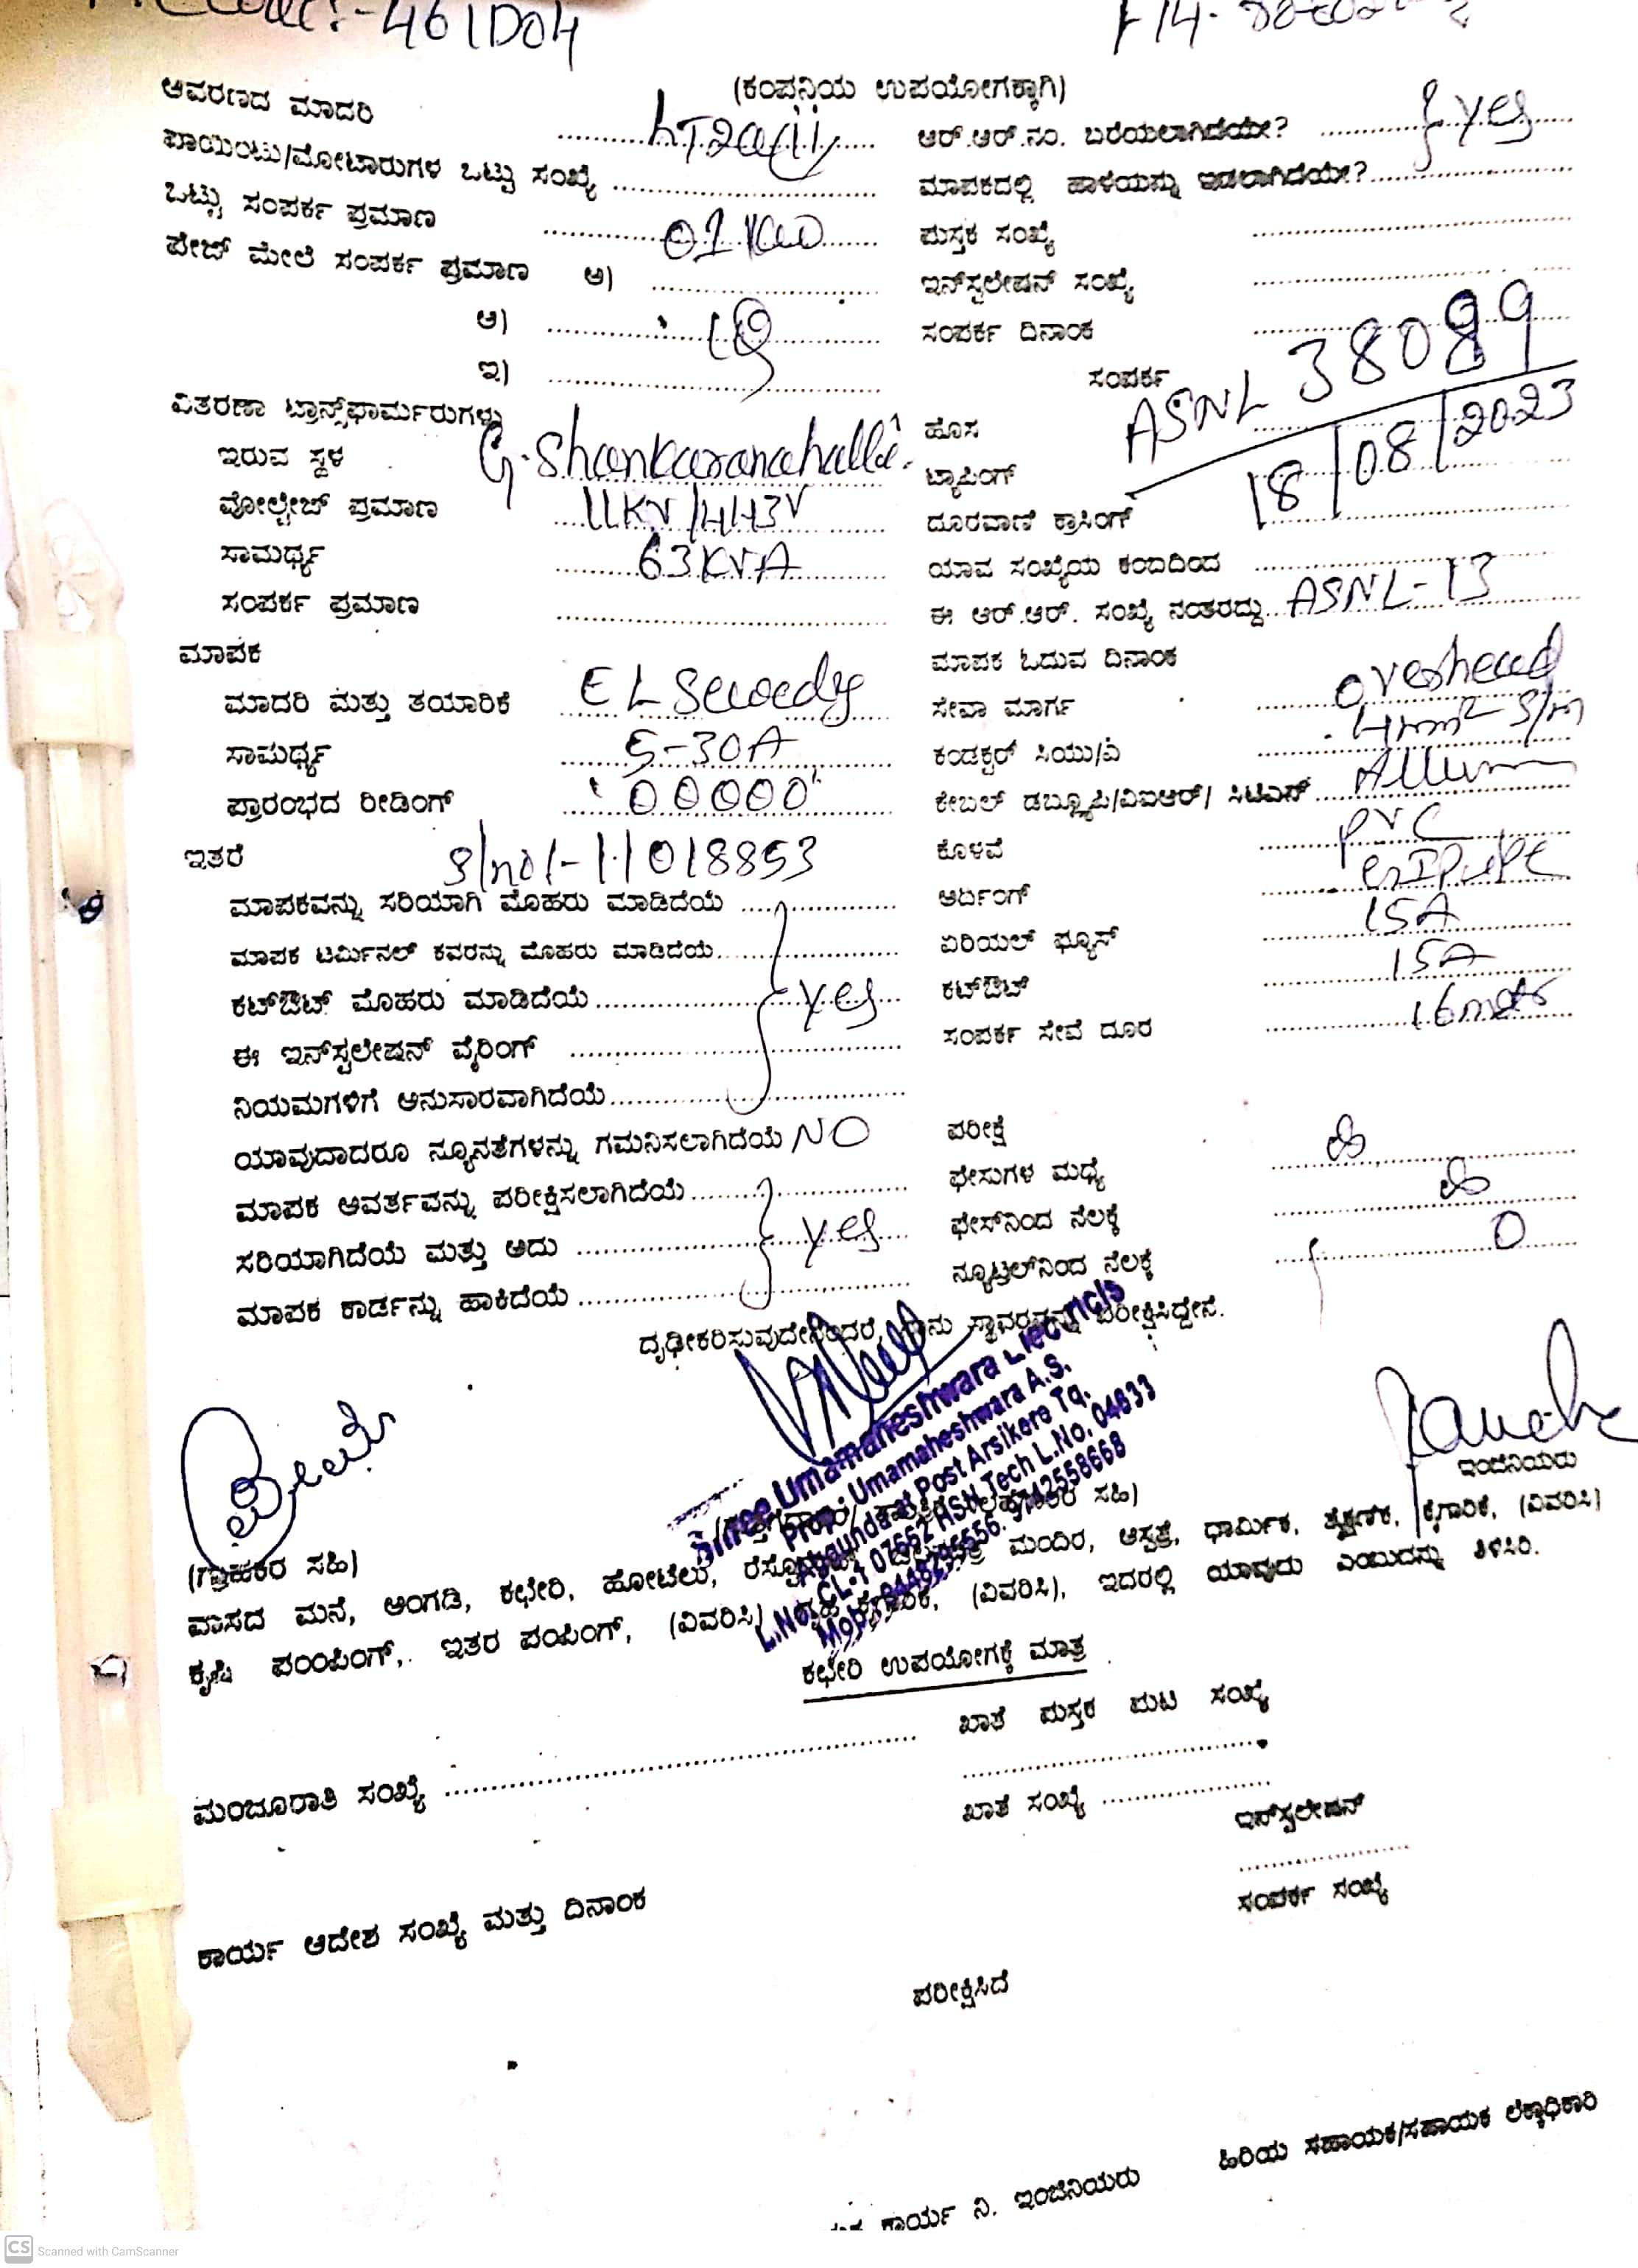 461D04
(ಕಂಪನಿಯ ಉಪಯೋಗಕ್ಕಾಗಿ)
ಆವರಣದ ಮಾದರಿ ಆರ್.ಆರ್.ನಂ. ಬರೆಯಲಾಗಿದೆಯೇ? yes
ಪಾಯಿಂಟು/ಮೋಟಾರುಗಳ ಒಟ್ಟು ಸಂಖ್ಯೆ ಮಾಪಕದಲ್ಲಿ ಹಾಳೆಯನ್ನು ಇಡಲಾಗಿದೆಯೇ?
ಒಟ್ಟು ಸಂಪರ್ಕ ಪ್ರಮಾಣ 01 KW ಪುಸ್ತಕ ಸಂಖ್ಯೆ
ಪೇಜ್ ಮೇಲೆ ಸಂಪರ್ಕ ಪ್ರಮಾಣ ಅ) ಇನ್‌ಸ್ಟಲೇಷನ್ ಸಂಖ್ಯೆ
ಆ) ಸಂಪರ್ಕ ದಿನಾಂಕ
ಇ) ಸಂಪರ್ಕ ASNL 38089
ವಿತರಣಾ ಟ್ರಾನ್ಸ್‌ಫಾರ್ಮರುಗಳು ಹೊಸ 18/08/2023
ಇರುವ ಸ್ಥಳ G. Shankaranahalli. ಟ್ಯಾಪಿಂಗ್
ವೋಲ್ಟೇಜ್ ಪ್ರಮಾಣ 11KV/443V ದೂರವಾಣಿ ಕ್ರಾಸಿಂಗ್
ಸಾಮರ್ಥ್ಯ 63KVA ಯಾವ ಸಂಖ್ಯೆಯ ಕಂಬದಿಂದ
ಸಂಪರ್ಕ ಪ್ರಮಾಣ ಈ ಆರ್.ಆರ್. ಸಂಖ್ಯೆ ನಂತರದ್ದು ASNL-13
ಮಾಪಕ ಮಾಪಕ ಓದುವ ದಿನಾಂಕ
ಮಾದರಿ ಮತ್ತು ತಯಾರಿಕೆ EL Sewedy ಸೇವಾ ಮಾರ್ಗ overhead
ಸಾಮರ್ಥ್ಯ 5-30A ಕಂಡಕ್ಟರ್ ಸಿಯು/ಎ 4mm²
ಪ್ರಾರಂಭದ ರೀಡಿಂಗ್ '00000' ಕೇಬಲ್ ಡಬ್ಲ್ಯೂಪಿ/ವಿಐಆರ್/ ಸಿಟಿಎಸ್
ಇತರೆ S/no/-11018853 ಕೊಳವೆ PVC
ಮಾಪಕವನ್ನು ಸರಿಯಾಗಿ ಮೊಹರು ಮಾಡಿದೆಯೆ ಅರ್ದಿಂಗ್ GI Pipe
ಮಾಪಕ ಟರ್ಮಿನಲ್ ಕವರನ್ನು ಮೊಹರು ಮಾಡಿದೆಯೆ ಏರಿಯಲ್ ಫ್ಯೂಸ್ 15A
ಕಟ್‌ಔಟ್ ಮೊಹರು ಮಾಡಿದೆಯೆ yes ಕಟ್‌ಔಟ್ 15A
ಈ ಇನ್‌ಸ್ಟಲೇಷನ್ ವೈರಿಂಗ್ ಸಂಪರ್ಕ ಸೇವೆ ದೂರ
ನಿಯಮಗಳಿಗೆ ಅನುಸಾರವಾಗಿದೆಯೆ
ಯಾವುದಾದರೂ ನ್ಯೂನತೆಗಳನ್ನು ಗಮನಿಸಲಾಗಿದೆಯೆ NO ಪರೀಕ್ಷೆ
ಮಾಪಕ ಆವರ್ತವನ್ನು ಪರೀಕ್ಷಿಸಲಾಗಿದೆಯೆ ಫೇಸುಗಳ ಮಧ್ಯೆ
ಸರಿಯಾಗಿದೆಯೆ ಮತ್ತು ಅದು yes ಫೇಸ್‌ನಿಂದ ನೆಲಕ್ಕೆ
ಮಾಪಕ ಕಾರ್ಡನ್ನು ಹಾಕಿದೆಯೆ ನ್ಯೂಟ್ರಲ್‌ನಿಂದ ನೆಲಕ್ಕೆ 0
ದೃಢೀಕರಿಸುವುದೇನೆಂದರೆ, ನಾನು ಸ್ಥಾವರವನ್ನು ಪರೀಕ್ಷಿಸಿದ್ದೇನೆ.
Shree Umamaheshwara Electricals
Prop: Umamaheshwara A.S.
Post Arsikere Tq.
HSN Tech L.No. 04633
9742558668
ಇಂಜಿನಿಯರು
(ಗ್ರಾಹಕರ ಸಹಿ)
ವಾಸದ ಮನೆ, ಅಂಗಡಿ, ಕಛೇರಿ, ಹೋಟೆಲು, ಮಂದಿರ, ಆಸ್ಪತ್ರೆ, ಧಾರ್ಮಿಕ, ಶೈಕ್ಷಣಿಕ, ಕೈಗಾರಿಕೆ, (ವಿವರಿಸಿ)
ಕೃಷಿ ಪಂಂಪಿಂಗ್, ಇತರ ಪಂಪಿಂಗ್, (ವಿವರಿಸಿ) (ವಿವರಿಸಿ), ಇದರಲ್ಲಿ ಯಾವುದು ಎಂಬುದನ್ನು ತಿಳಿಸಿರಿ.
ಕಛೇರಿ ಉಪಯೋಗಕ್ಕೆ ಮಾತ್ರ
ಖಾತೆ ಪುಸ್ತಕ ಪುಟ ಸಂಖ್ಯೆ
ಮಂಜೂರಾತಿ ಸಂಖ್ಯೆ
ಖಾತೆ ಸಂಖ್ಯೆ
ಇನ್‌ಸ್ಟಲೇಷನ್
ಸಂಪರ್ಕ ಸಂಖ್ಯೆ
ಕಾರ್ಯ ಆದೇಶ ಸಂಖ್ಯೆ ಮತ್ತು ದಿನಾಂಕ
ಪರೀಕ್ಷಿಸಿದೆ
ಹಿರಿಯ ಸಹಾಯಕ/ಸಹಾಯಕ ಲೆಕ್ಕಾಧಿಕಾರಿ
ಕಾರ್ಯ ನಿ. ಇಂಜಿನಿಯರು
CS Scanned with CamScanner